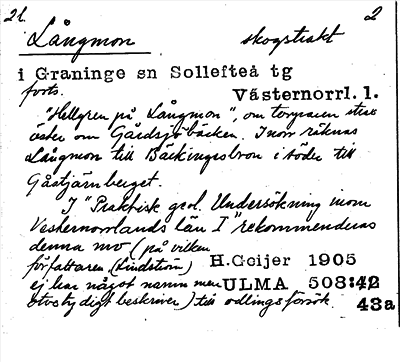 21. 2
Långmon skogstrakt
i Graninge sn Sollefteå tg
forts. Västernorrl. l.
"Hellgren på Långmon", om torparen strax
öster om Gårdsjöbäcken. Inom räknas
Långmon till Bäckingesbron i söder till
Gåstjärnberget.
I "Praktisk geol. Undersökning inom
Vesternorrlands län I" rekommenderas
denna mo (på vilken
författaren (Lindström) H.Geijer 1905
ej har något namn men ULMA 508:42
otvetydigt beskriver) till odlingsförsök. 43a